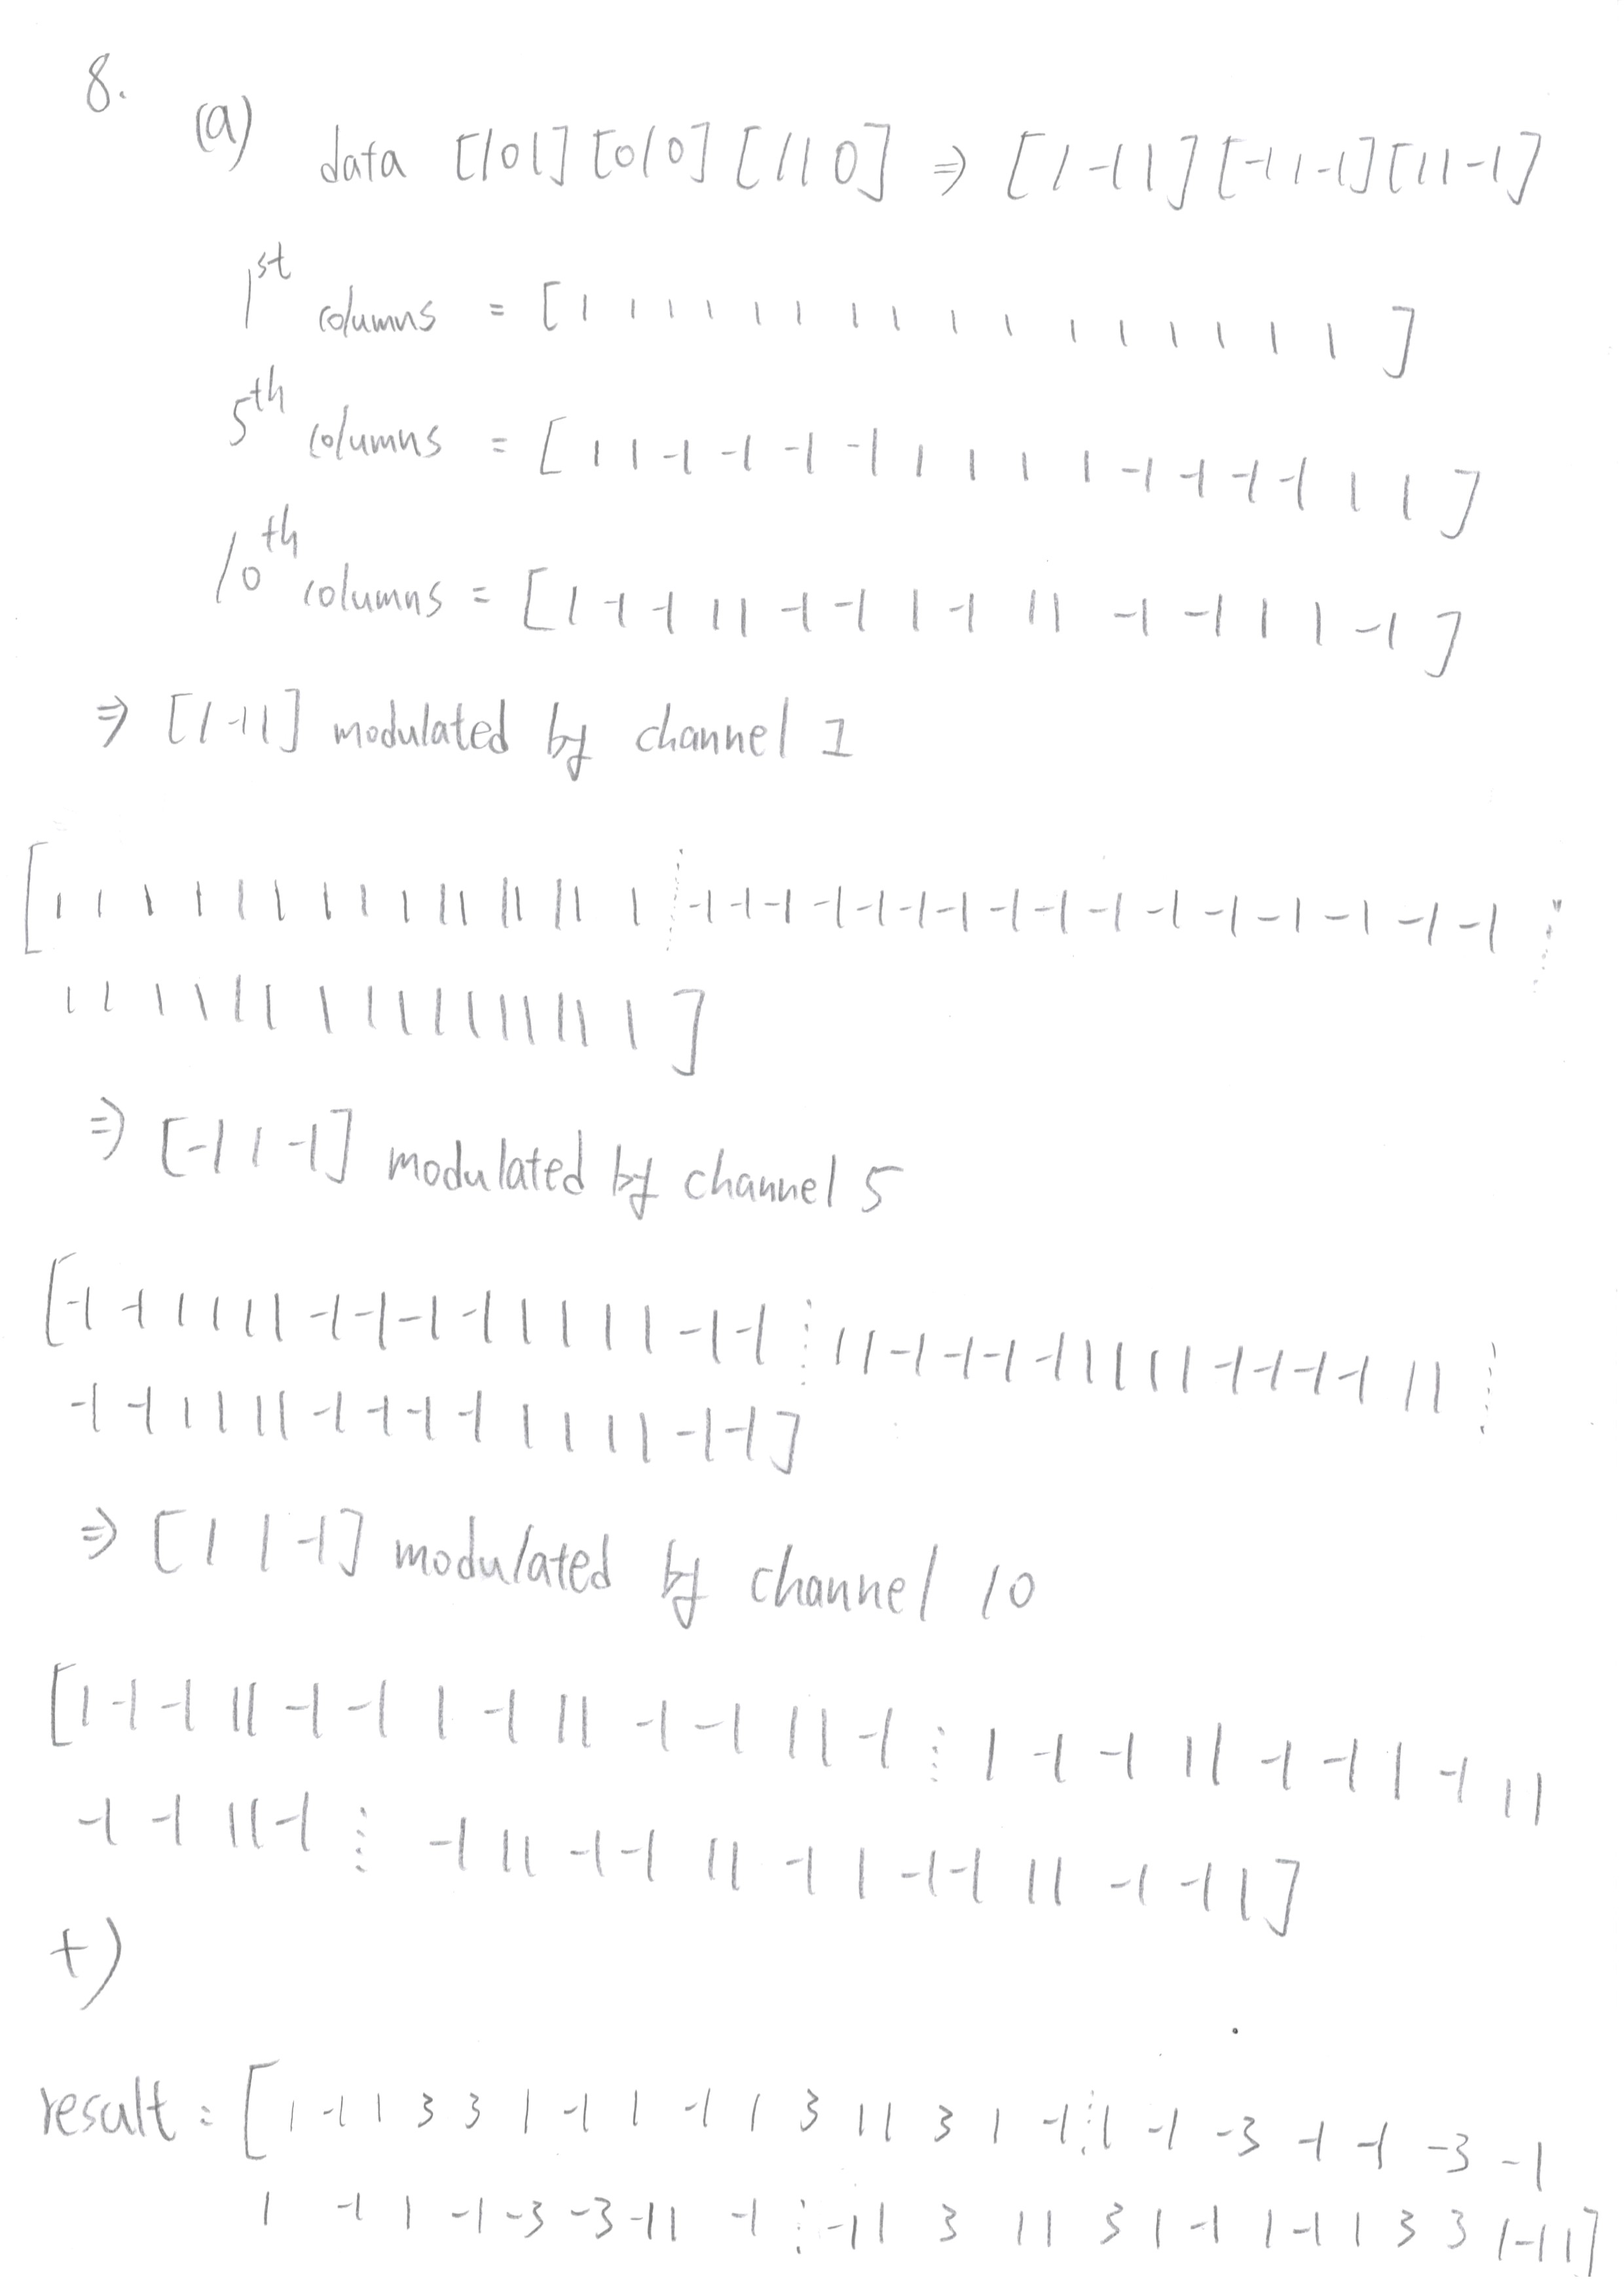 8.
(a) data [101][010][110] ⇒ [1 -1 1][-1 1 -1][1 1 -1]
1st columns = [1 1 1 1 1 1 1 1 1 1 1 1 1 1 1 1]
5th columns = [1 1 -1 -1 -1 -1 1 1 1 1 -1 -1 -1 -1 1 1]
10th columns = [1 -1 -1 1 1 -1 -1 1 -1 1 1 -1 -1 1 1 -1]
⇒ [1 -1 1] modulated by channel 1
[1 1 1 1 1 1 1 1 1 1 1 1 1 1 1 1 ⋮ -1 -1 -1 -1 -1 -1 -1 -1 -1 -1 -1 -1 -1 -1 -1 -1 ⋮
1 1 1 1 1 1 1 1 1 1 1 1 1 1 1 1]
⇒ [-1 1 -1] modulated by channel 5
[-1 -1 1 1 1 1 -1 -1 -1 -1 1 1 1 1 -1 -1 ⋮ 1 1 -1 -1 -1 -1 1 1 1 1 -1 -1 -1 -1 1 1 ⋮
-1 -1 1 1 1 1 -1 -1 -1 -1 1 1 1 1 -1 -1]
⇒ [1 1 -1] modulated by channel 10
[1 -1 -1 1 1 -1 -1 1 -1 1 1 -1 -1 1 1 -1 ⋮ 1 -1 -1 1 1 -1 -1 1 -1 1 1
-1 -1 1 1 -1 ⋮ -1 1 1 -1 -1 1 1 -1 1 -1 -1 1 1 -1 -1 1]
+)
result : [1 -1 1 3 3 1 -1 1 -1 1 3 1 1 3 1 -1 ⋮ 1 -1 -3 -1 -1 -3 -1
1 -1 1 -1 -3 -3 -1 1 -1 ⋮ -1 1 3 1 1 3 1 -1 1 -1 1 3 3 1 -1 1]